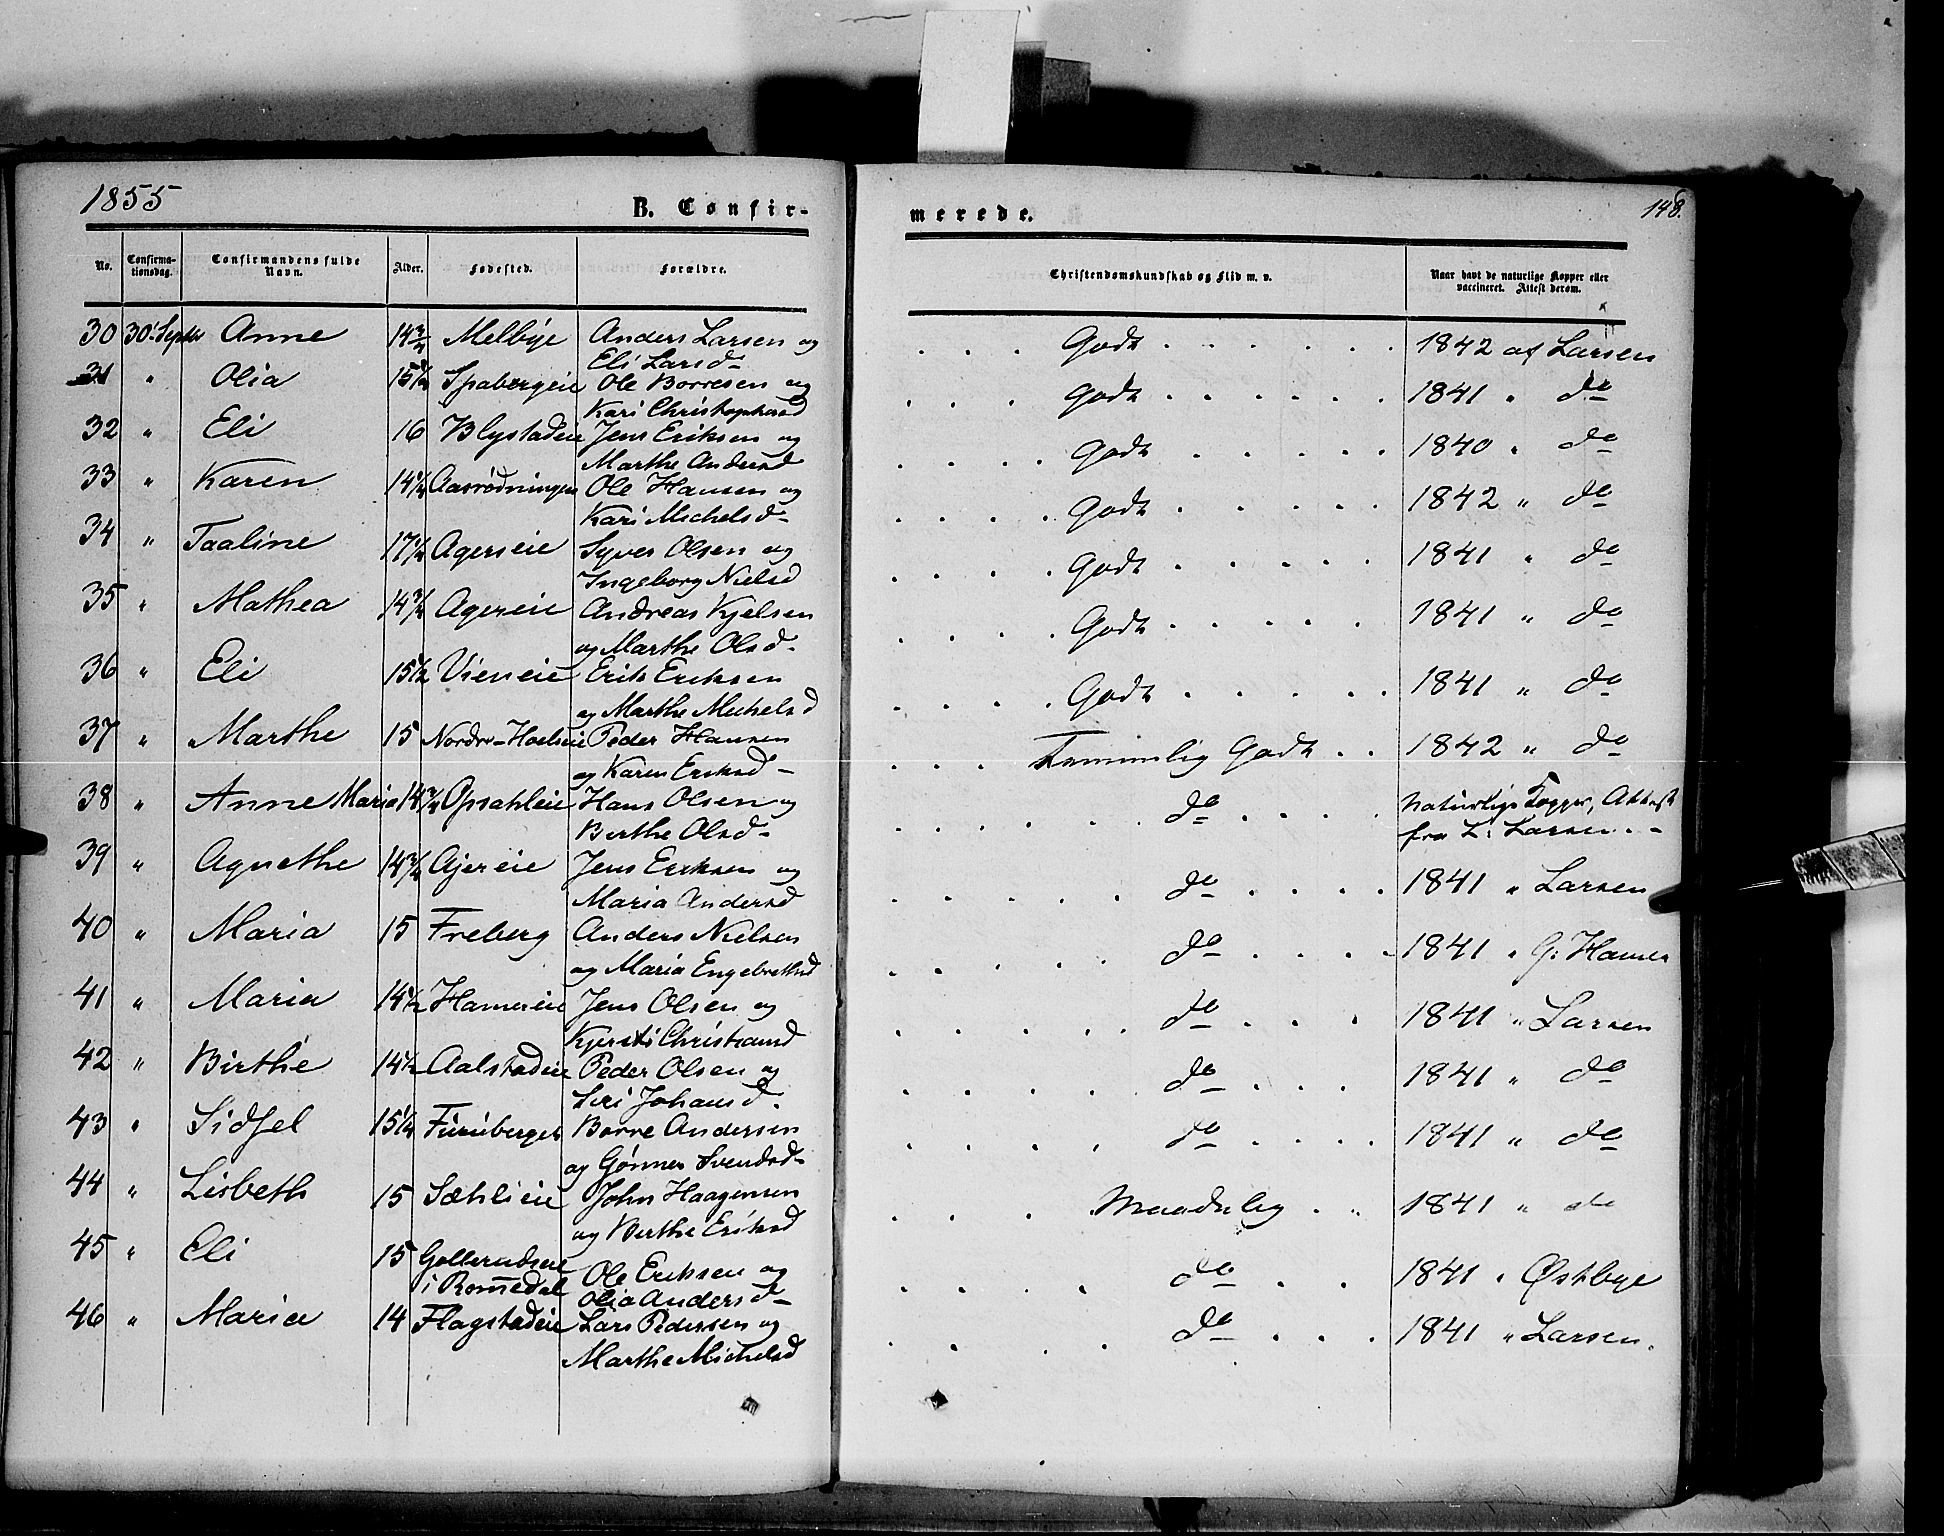 1855
B. Confir-
merede.
148.
No.
Confirma-
tionsdag.
Confirmandens fulde
Navn.
Alder.
Fødested.
Forældre.
Christendomskundskab og Flid m. v.
Naar havt de naturlige Kopper eller
vaccineret. Attest derom.
30 30 Septbr Anne 14 3/4 Melbye Anders Larsen og Godt 1842 af Larsen
Eli Larsd
31 " Olia 15 1/2 Spabergeie Ole Borresen og Godt 1841 " do
Kari Christophersd
32 " Eli 16 Blystadeie Jens Eriksen og Godt 1840 " do
Marthe Andersd
33 " Karen 14 1/4 Aasrødningen Ole Hansen og Godt 1842 " do
Kari Michelsd
34 " Taaline 17 1/4 Agerseie Syver Olsen og Godt 1841 " do
Ingeborg Nielsd
35 " Mathea 14 3/4 Agereie Andreas Kjelsen Godt 1841 " do
og Marthe Olsd
36 " Eli 15 1/2 Vieneie Erik Eriksen Godt 1841 " do
og Marthe Michelsd
37 " Marthe 15 Nordre-Hoelseie Peder Hansen Temmelig Godt 1842 " do
og Karen Eriksd
38 " Anne Maria 14 3/4 Opsahleie Hans Olsen og do Naturlige Kopper, Attest
Birthe Olsd fra L: Larsen
39 " Agnethe 14 3/4 Ajereie Jens Eriksen og do 1841 " Larsen
Maria Andersd
40 " Maria 15 Freberg Anders Nielsen do 1841 " G: Hansen
og Maria Engebrethsd
41 " Maria 14 1/2 Hamereie Jens Olsen og do 1841 " Larsen
Kjersti Christiansd
42 " Birthe 14 1/2 Aalstadeie Peder Olsen og do 1841 " do
Siri Johansd
43 " Sidsel 15 1/4 Furuberget Borre Andersen do 1841 " do
og Gønner Svendsd
44 " Lisbeth 15 Sæhlieie John Haagensen Maadelig 1841 " do
og Birthe Eriksd
45 " Eli 15 Gollerudseie Ole Eriksen og do 1841 " Østbye
i Romedal Olia Andersd
46 " Maria 14 Flagstadeie Lars Pedersen og do 1841 " Larsen.
Marthe Michelsd